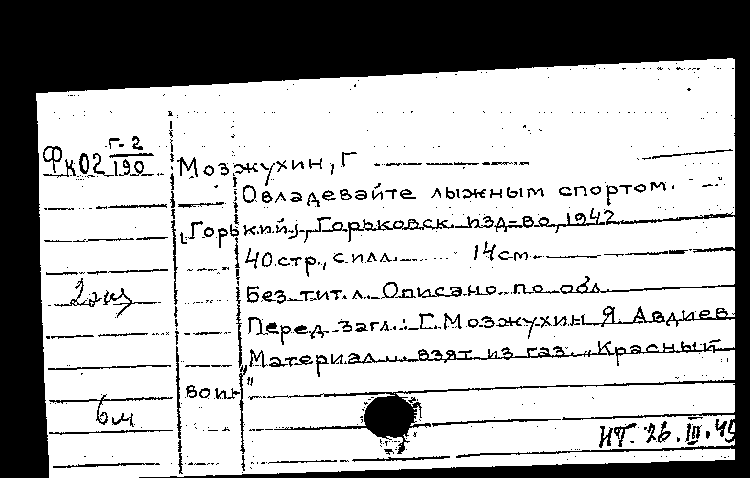 Фк02 Г-2/190
Мозжухин, Г
Овладевайте лыжным спортом.
[Горький], Горьковск. изд-во, 1942
40 стр., с илл. 14 см.
2 экз
Без тит. л. Описано по обл.
Перед загл.: Г. Мозжухин Я. Авдиев
"Материал... взят из газ. "Красный
воин"
6м
НТ. 26.III.45